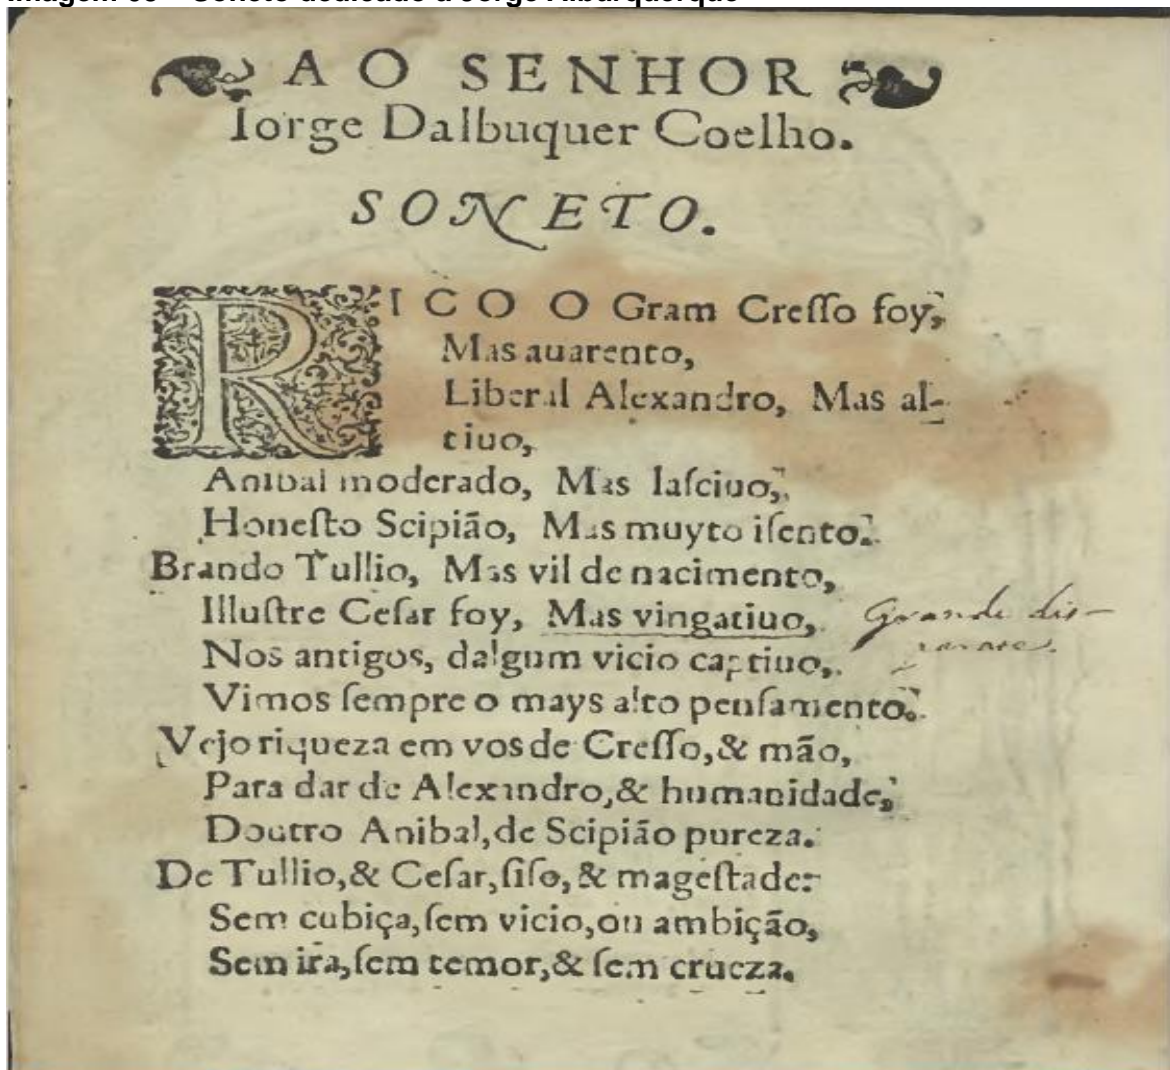 AO SENHOR
Iorge Dalbuquer Coelho.
SONETO.
RICO O Gram Creſſo foy,
Mas auarento,
Liberal Alexandro, Mas al-
tiuo,
Anibal moderado, Mas laſciuo,
Honeſto Scipião, Mas muyto iſento.
Brando Tullio, Mas vil de nacimento,
Illuſtre Ceſar foy, Mas vingatiuo,
Grande diſ-
Nos antigos, dalgum vicio captiuo,
Vimos ſempre o mays alto penſamento.
Vejo riqueza em vos de Creſſo, & mão,
Para dar de Alexandro, & humanidade,
Doutro Anibal, de Scipião pureza.
De Tullio, & Ceſar, ſiſo, & mageſtade:
Sem cubiça, ſem vicio, ou ambição,
Sem ira, ſem temor, & ſem crueza.